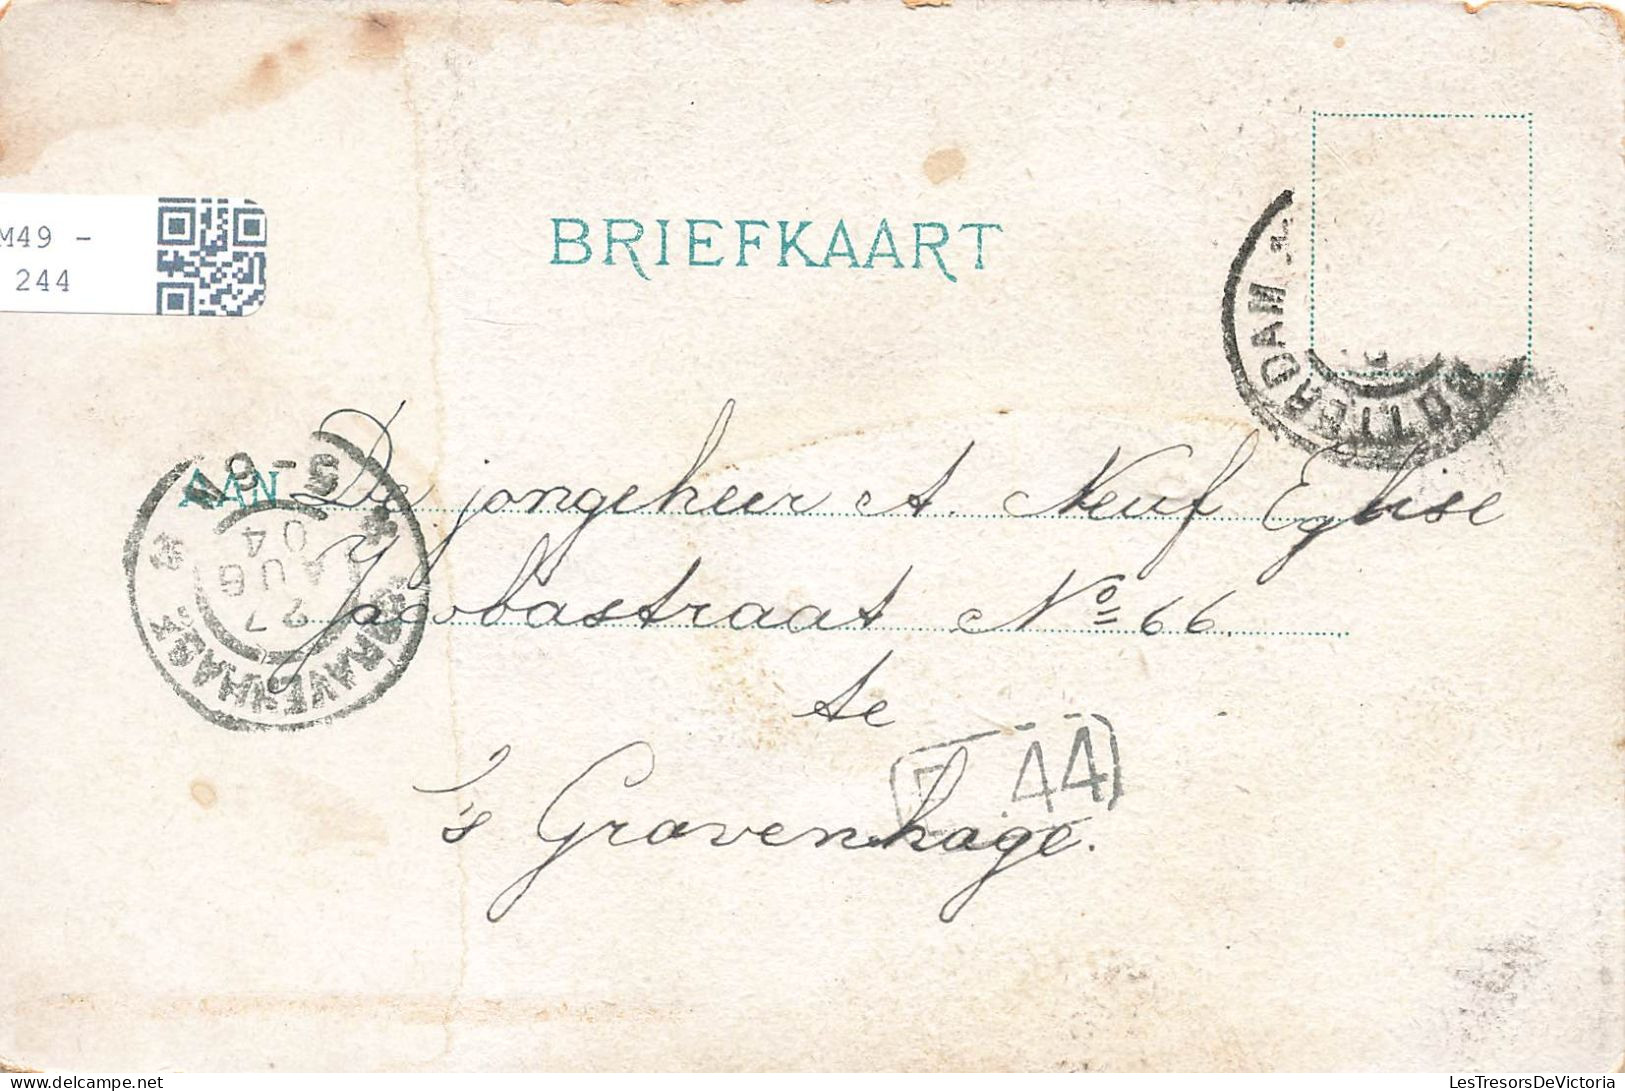 M49 -
244
BRIEFKAART
ROTTERDAM
AAN De jongeheer A. Neuf Eglise
Jacobastraat No 66.
te
's Gravenhage.
'SGRAVENHAGE
5-6N
27
AUG
04
44
LesTresorsDeVictoria